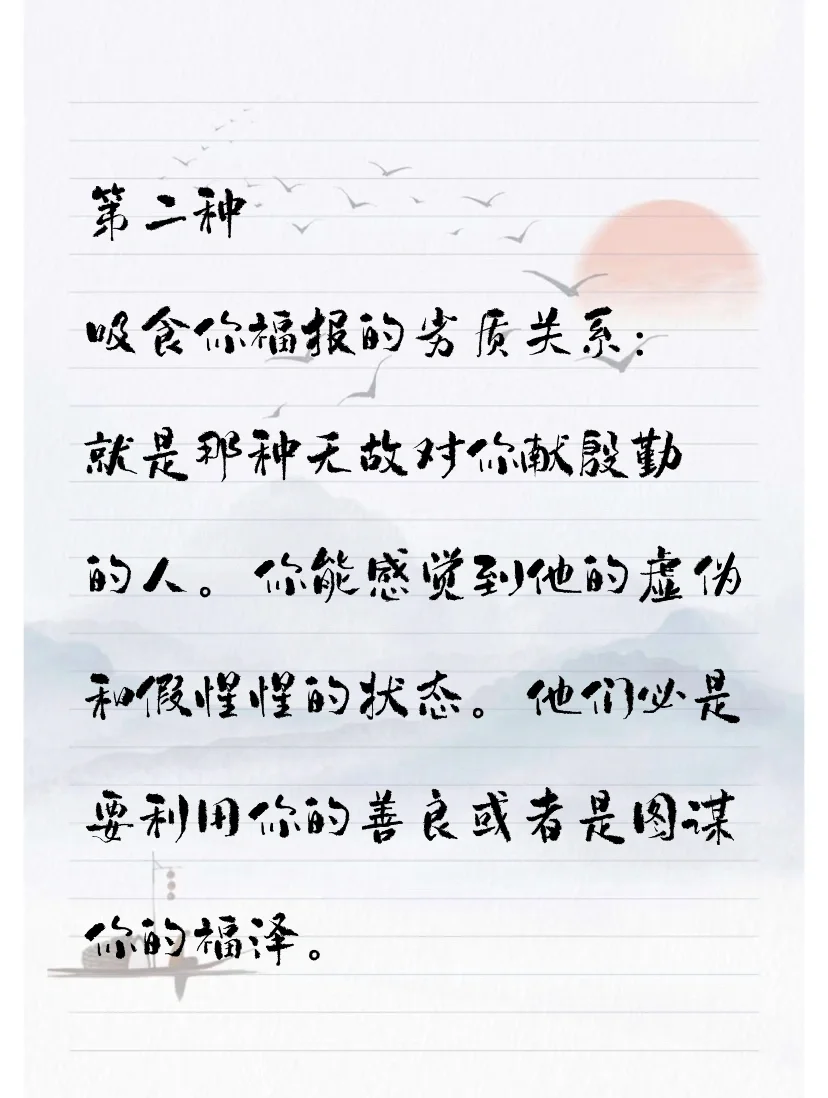 第二种
吸食你福报的劣质关系：
就是那种无故对你献殷勤
的人。你能感觉到他的虚伪
和假惺惺的状态。他们必是
要利用你的善良或者是图谋
你的福泽。